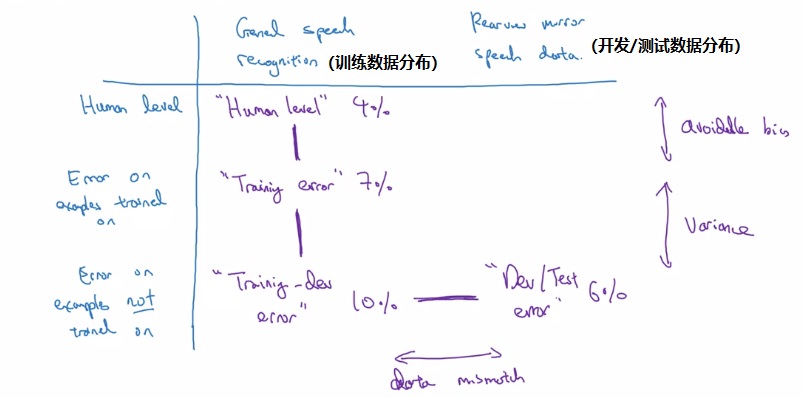 General speech
recognition (训练数据分布)
Rearview mirror
speech data. (开发/测试数据分布)
Human level
"Human level" 4%
avoidable bias
Error on
examples trained
on
"Training error" 7%
Variance
Error on
examples not
trained on
"Training-dev
error" 10%
"Dev/Test
error" 6%
data mismatch